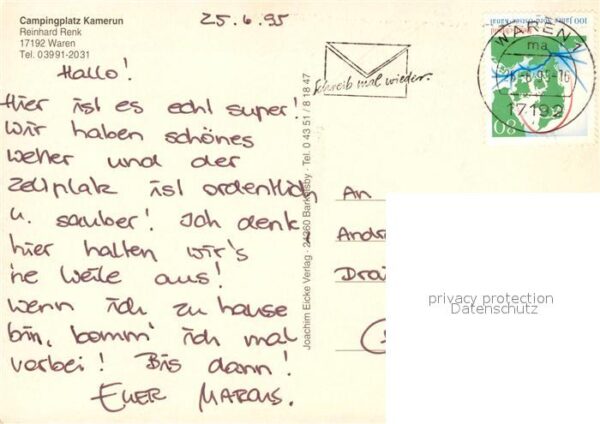 Campingplatz Kamerun
Reinhard Renk
17192 Waren
Tel. 03991-2031
25.6.95
Hallo!
Hier ist es echt super!
Wir haben schönes
wetter und der
Zeltplatz ist ordentlich
u. sauber! Ich denk,
hier halten wir's
'ne Weile aus!
wenn ich zu hause
bin, komm' ich mal
vorbei! Bis dann!
EUER MARCUS.
Joachim Eicke Verlag · 24360 Barkelsby · Tel. 0 43 51 / 8 18 47
Schreib mal wieder.
WAREN 1
ma
17192
100 Jahre
80
An
Andr
privacy protection
Datenschutz